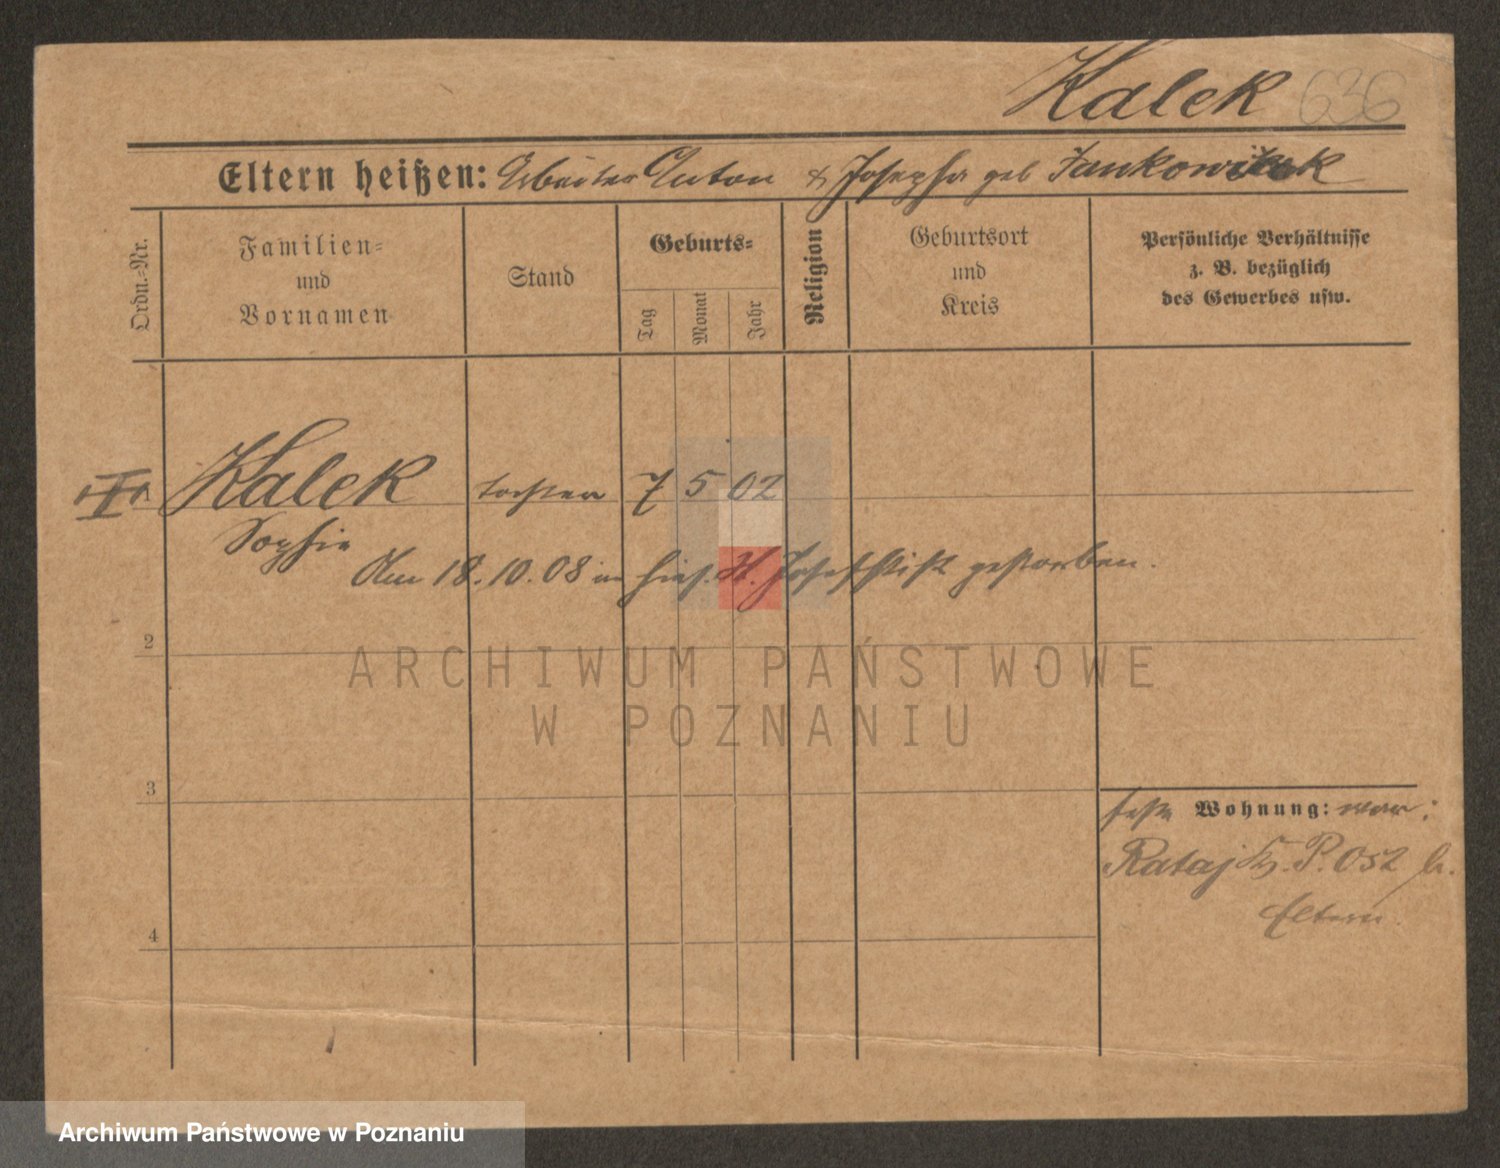 Kalek 636
Eltern heißen: Arbeiter Anton & Josepha geb Jankowiak
Ordn.=Nr.
Familien=
und
Vornamen
Stand
Geburts=
Tag
Monat
Jahr
Religion
Geburtsort
und
Kreis
Persönliche Verhältnisse
z. B. bezüglich
des Gewerbes usw.
Kalek tochter 7 5 02
Sophie
Am 18.10.08 im hies. St. Josefstift gestorben.
2
3
4
Wohnung: war:
Rataj P. Ost b.
Eltern.
ARCHIWUM PAŃSTWOWE
W POZNANIU
Archiwum Państwowe w Poznaniu